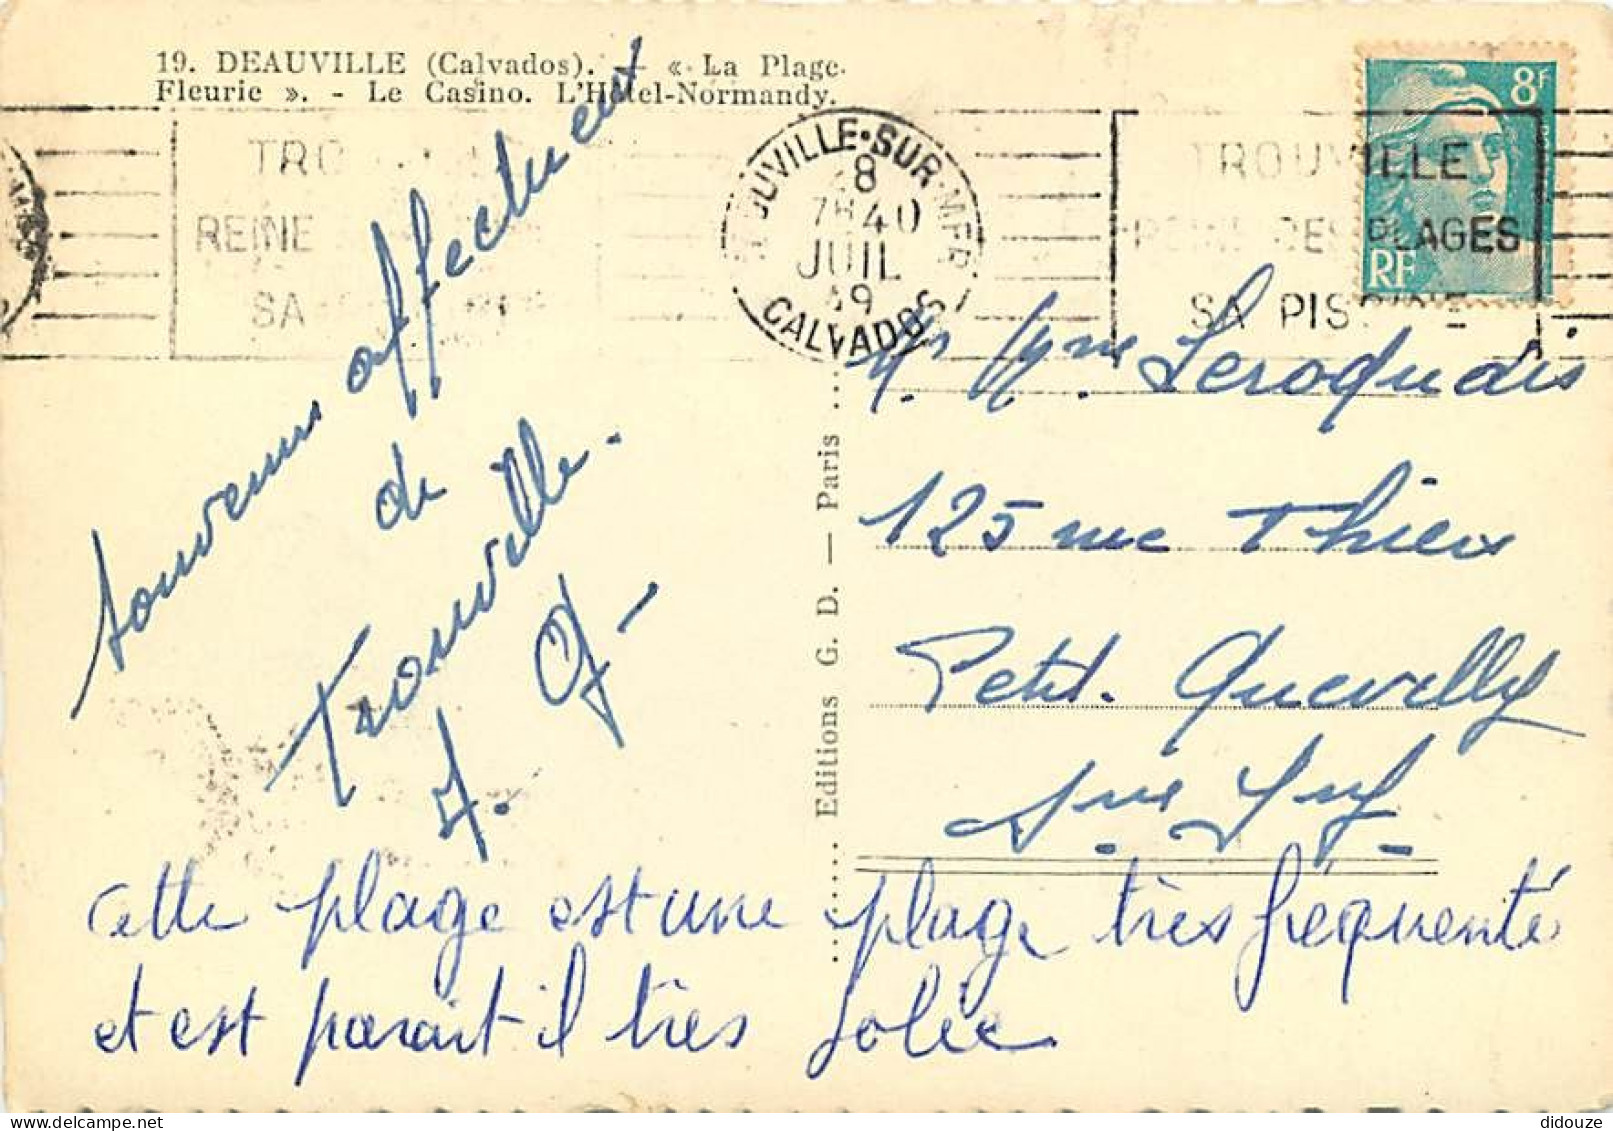 19. DEAUVILLE (Calvados). — « La Plage
Fleurie ». - Le Casino. L'Hôtel-Normandy.
TRO
REINE
SA
TROUVILLE-SUR-MER
8
7H40
JUIL
49
CALVADOS
TROUVILLE
REINE DES PLAGES
SA PISCINE
8F
RF
souvenirs affectueux
de
Trouville.
Editions G. D. — Paris
Mr. Mme. Leroquais
125 rue Thiers
Petit. Quevilly
Sne Inf
Cette plage est une plage très fréquenté
et est parait-il très jolie.
didouze